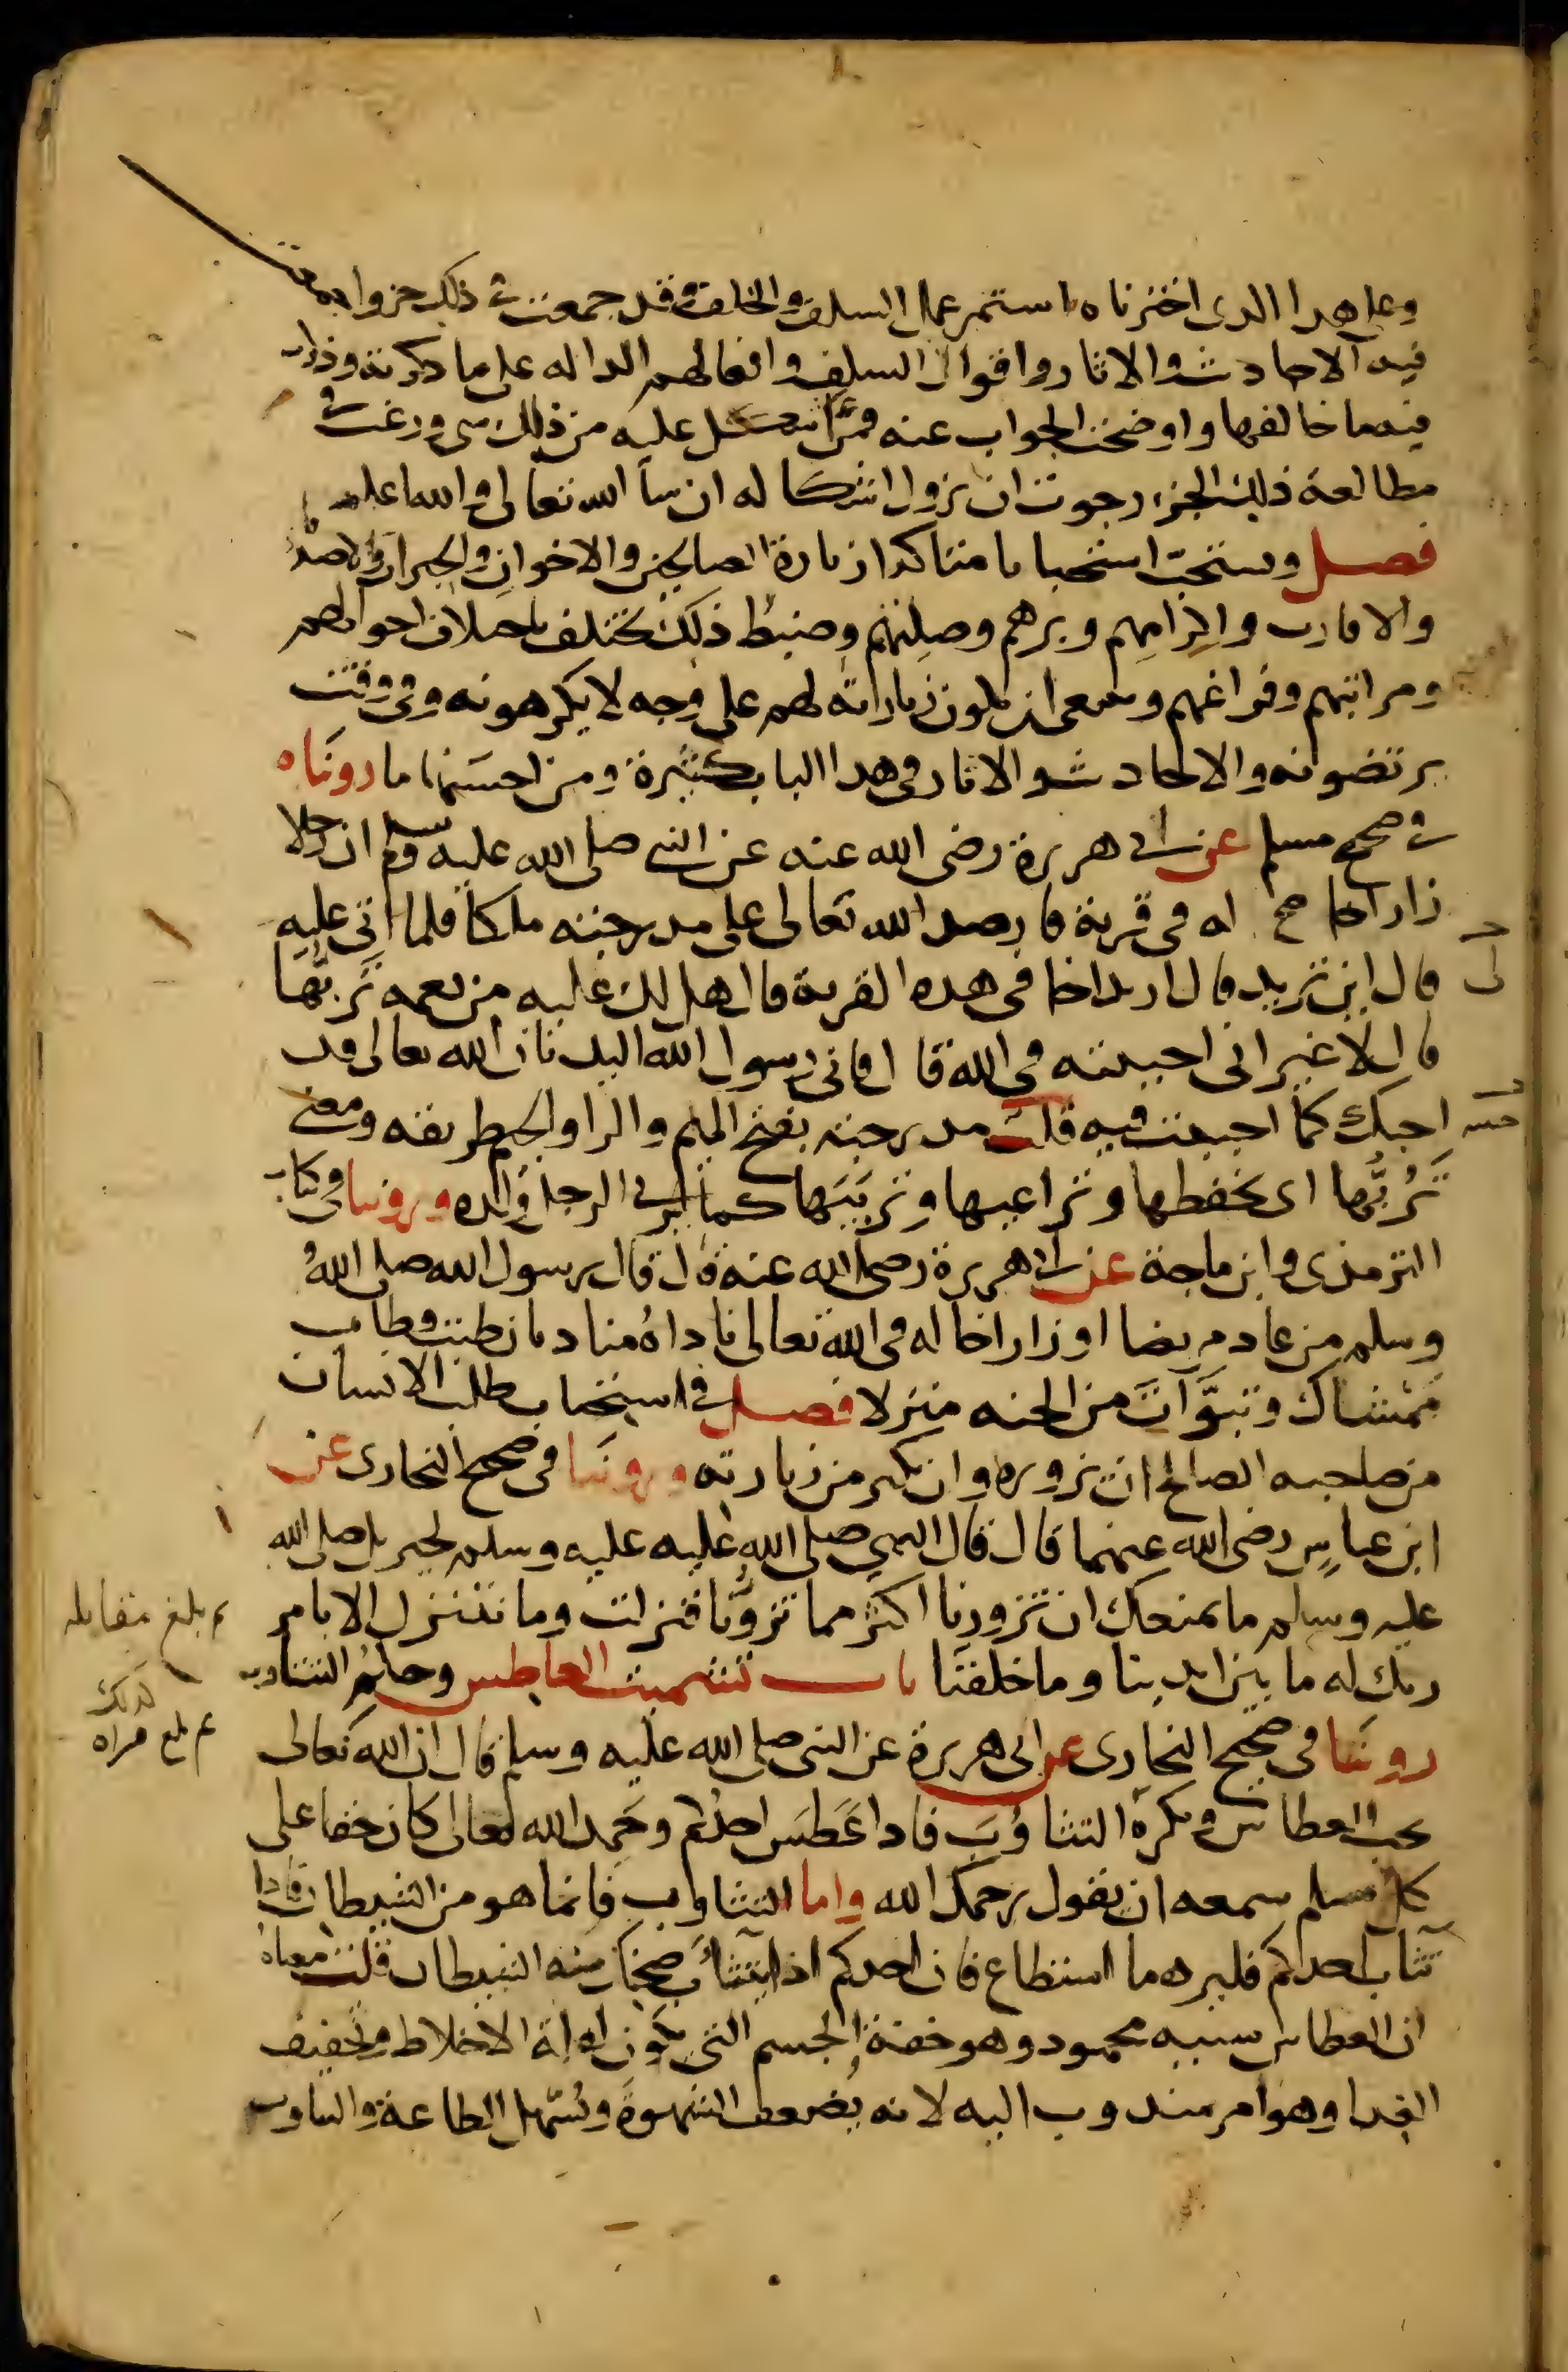 وعلى هذا الذى اخترناه استمر عمل السلف والخلف وقد جمعت فى ذلك جزوا جمعت
فيه الاحاديث والاثار واقوال السلف وافعالهم الداله على ما ذكرته وذكرت
فيه ما خالفها واوضحت الجواب عنه فمن اشكل عليه من ذلك شى ورغب فى
مطالعة ذلك الجزء رجوت ان يزول اشكاله ان شا الله تعالى والله اعلم
فصل ويستحب استحبابا متاكدا زيارة الصالحين والاخوان والجيران والاصدقا
والاقارب واكرامهم وبرهم وصلتهم وضبط ذلك يختلف باختلاف احوالهم
ومراتبهم وفراغهم وينبغى ان يكون زيارته لهم على وجه لا يكرهونه وفى وقت
يرتضونه والاحاديث والاثار فى هذا الباب كثيرة ومن احسنها ما رويناه
فى صحيح مسلم عن ابى هريرة رضى الله عنه عن النبى صلى الله عليه وسلم ان رجلا
زار اخا صح له فى قرية فارصد الله تعالى على مدرجته ملكا فلما اتى عليه
قال اين تريد قال اريد اخا لى فى هذه القرية قال هل لك عليه من نعمه تربها
قال لا غير انى احببته فى الله قال فانى رسول الله اليك بان الله تعالى قد
احبك كما احببته فيه قلت مدرجته بفتح الميم والرا والجيم طريقه ومعنى
تربها اى تحفظها وتراعيها وتربيها كما يربى الرجل ولده وروينا فى كتاب
الترمذى وابن ماجة عن ابى هريرة رضى الله عنه قال قال رسول الله صلى الله
وسلم من عاد مريضا او زار اخا له فى الله تعالى ناداه مناد بان طبت وطاب
ممشاك وتبوات من الجنه منزلا فصل فى استحباب طلب الانسان
من صاحبه الصالح ان يزوره وان يكثر من زيارته وروينا فى صحيح البخارى عن
ابن عباس رضى الله عنهما قال قال النبى صلى الله عليه عليه وسلم لجبريل صلى الله
عليه وسلم ما يمنعك ان تزورنا اكثر مما تزورنا فنزلت وما نتنزل الا بامر
ربك له ما بين ايدينا وما خلفنا باب تشميت العاطس وحكم التثاوب
روينا فى صحيح البخارى عن ابى هريرة عن النبى صلى الله عليه وسلم قال ان الله تعالى
يحب العطاس ويكره التثاوب فاذا عطس احدكم وحمد الله تعالى كان حقا على
كل مسلم سمعه ان يقول يرحمك الله واما التثاوب فانما هو من الشيطان فاذا
تثاب احدكم فليرده ما استطاع فان احدكم اذا تثاب ضحك منه الشيطان قلت معناه
ان العطاس سببه محمود وهو خفة الجسم التى تكون لقلة الاخلاط وتخفيف
الغدا وهو امر مندوب اليه لانه يضعف الشهوة ويسهل الطاعة والتثاوب
لى
بلغ مقابله
كذلك
بلغ قراه